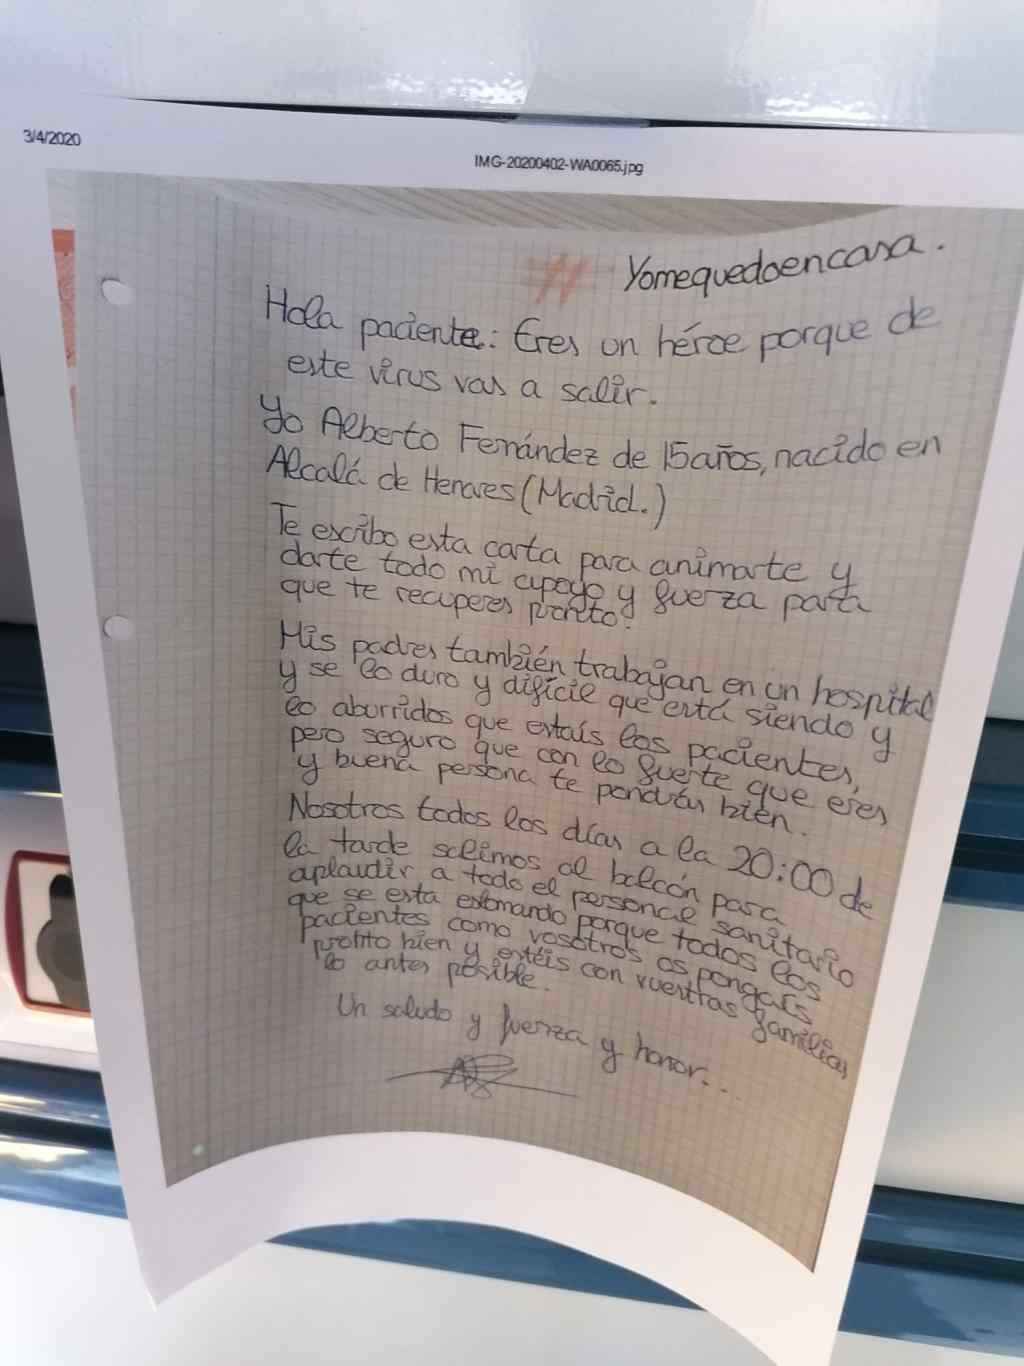 3/4/2020
IMG-20200402-WA0065.jpg
# Yomequedoencasa.
Hola paciente: Eres un héroe porque de
este virus vas a salir.
Yo Alberto Fernández de 15 años, nacido en
Alcalá de Henares (Madrid.)
Te escribo esta carta para animarte y
darte todo mi apoyo y fuerza para
que te recuperes pronto!
Mis padres también trabajan en un hospital
y se lo duro y difícil que está siendo y
lo aburridos que estaís los pacientes,
pero seguro que con lo fuerte que eres
y buena persona te pondrás bien.
Nosotros todos los días a la 20:00 de
la tarde salimos al balcón para
aplaudir a todo el personal sanitario
que se esta esforzando porque todos los
pacientes como vosotros os pongaís
pronto bien y estéis con vuestras familias
lo antes posible.
Un saludo y fuerza y honor...